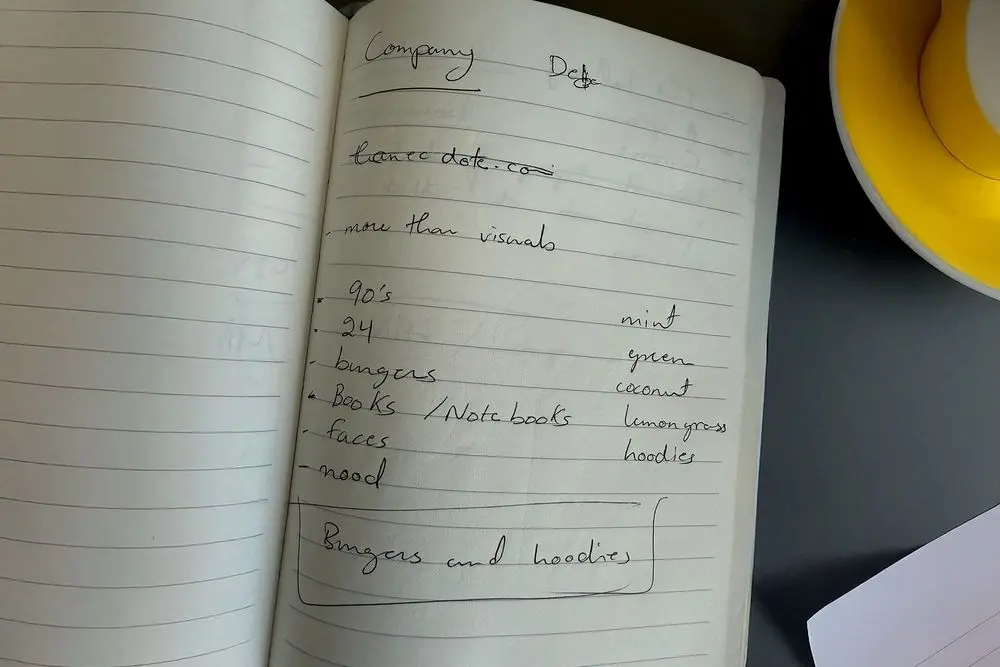 Company
more than visuals
90's
24
burgers
Books /Notebooks
faces
mood
mint
green
coconut
lemongrass
hoodies
Burgers and hoodies